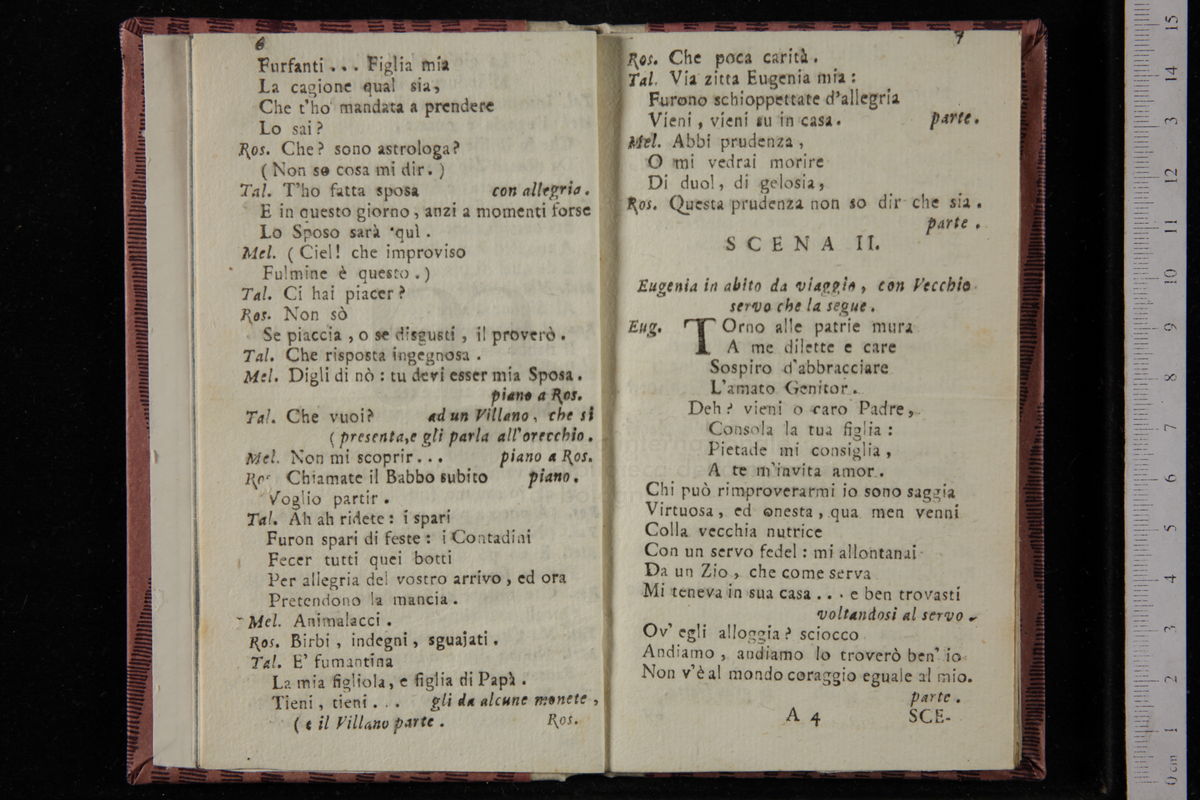 6
Furfanti... Figlia mia
La cagione qual sia,
Che t'ho mandata a prendere
Lo sai?
Ros. Che? sono astrologa?
(Non so cosa mi dir.)
Tal. T'ho fatta sposa con allegria.
E in questo giorno, anzi a momenti forse
Lo Sposo sarà quì.
Mel. (Ciel! che improviso
Fulmine è questo.)
Tal. Ci hai piacer?
Ros. Non sò
Se piaccia, o se disgusti, il proverò.
Tal. Che risposta ingegnosa.
Mel. Digli di nò: tu devi esser mia Sposa.
piano a Ros.
Tal. Che vuoi? ad un Villano, che si
(presenta, e gli parla all'orecchio.
Mel. Non mi scoprir... piano a Ros.
Ros Chiamate il Babbo subito piano.
Voglio partir.
Tal. Ah ah ridete: i spari
Furon spari di feste: i Contadini
Fecer tutti quei botti
Per allegria del vostro arrivo, ed ora
Pretendono la mancia.
Mel. Animalacci.
Ros. Birbi, indegni, sguajati.
Tal. E' fumantina
La mia figliola, e figlia di Papà.
Tieni, tieni... gli da alcune monete,
(e il Villano parte. Ros.
7
Ros. Che poca carità.
Tal. Via zitta Eugenia mia:
Furono schioppettate d'allegria
Vieni, vieni su in casa. parte.
Mel. Abbi prudenza,
O mi vedrai morire
Di duol, di gelosia,
Ros. Questa prudenza non so dir che sia.
parte.
SCENA II.
Eugenia in abito da viaggio, con Vecchio
servo che la segue.
Eug. TOrno alle patrie mura
A me dilette e care
Sospiro d'abbracciare
L'amato Genitor.
Deh? vieni o caro Padre,
Consola la tua figlia:
Pietade mi consiglia,
A te m'invita amor.
Chi può rimproverarmi io sono saggia
Virtuosa, ed onesta, qua men venni
Colla vecchia nutrice
Con un servo fedel: mi allontanai
Da un Zio, che come serva
Mi teneva in sua casa... e ben trovasti
voltandosi al servo.
Ov' egli alloggia? sciocco
Andiamo, andiamo lo troverò ben' io
Non v'è al mondo coraggio eguale al mio.
parte.
A 4 SCE-
15
14
13
12
11
10
9
8
7
6
5
4
3
2
1
0 cm